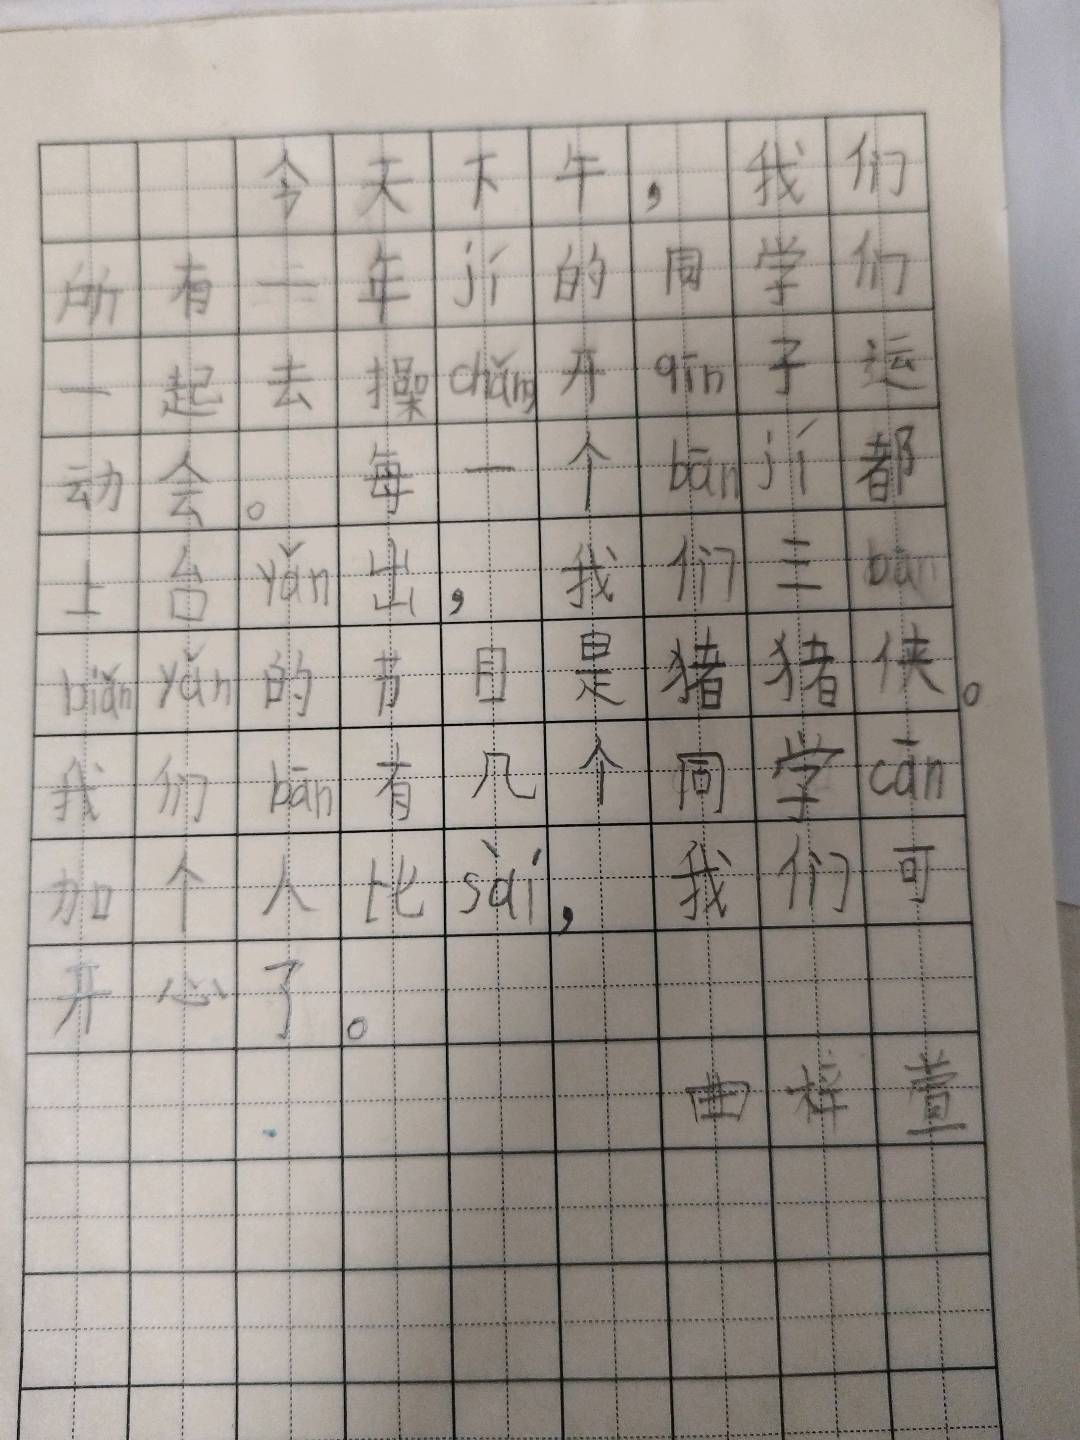 今天下午，我们
所有一年jí的同学们
一起去操chǎng开qīn子运
动会。每一个bānjí都
上台yǎn出，我们三bān
biǎnyǎn的节目是猪猪侠。
我们bān有几个同学cān
加个人比sài，我们可
开心了。
曲梓萱